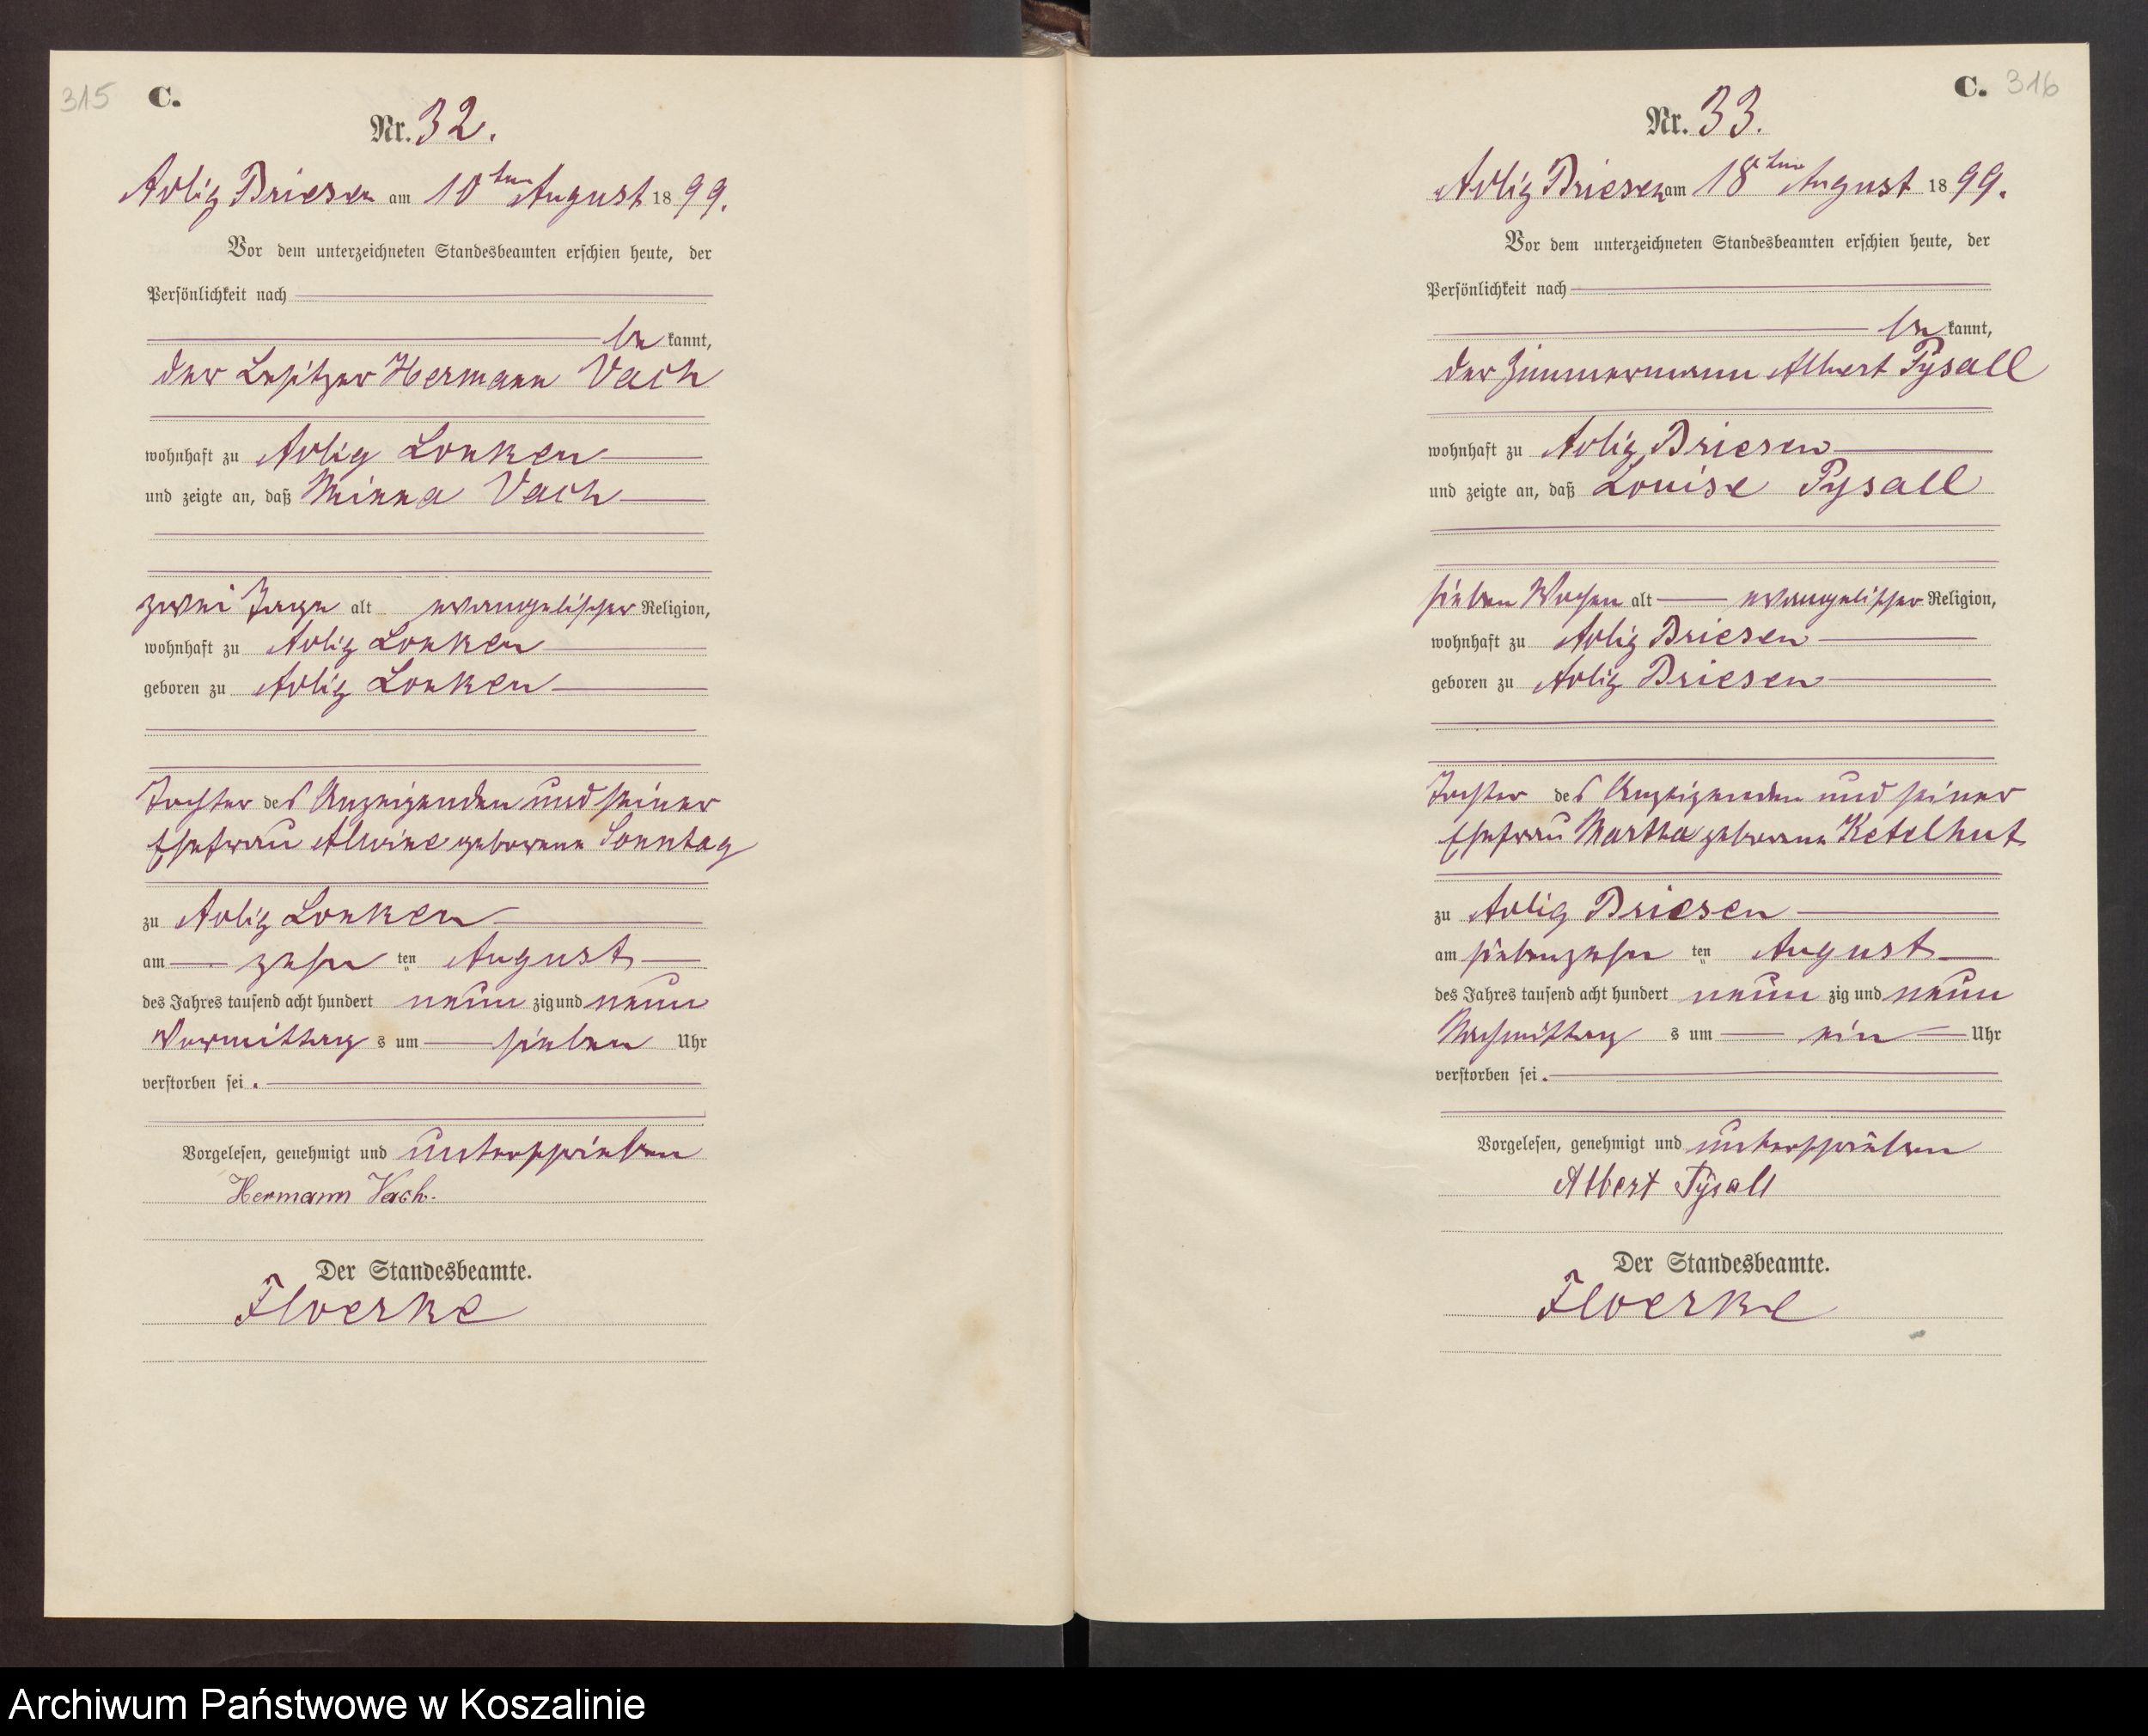 315 C.
Nr. 32.
Adlig Briesen am 10ten August 1899.
Vor dem unterzeichneten Standesbeamten erschien heute, der
Persönlichkeit nach
be kannt,
der Besitzer Hermann Vach
wohnhaft zu Adlig Lonken
und zeigte an, daß Minna Vach
zwei Tage alt evangelischer Religion,
wohnhaft zu Adlig Lonken
geboren zu Adlig Lonken
Tochter des Anzeigenden und seiner
Ehefrau Alwine geborene Sonntag
zu Adlig Lonken
am zehn ten August
des Jahres tausend acht hundert neun zig und neun
Vormittag s um sieben Uhr
verstorben sei.
Vorgelesen, genehmigt und unterschrieben
Hermann Vach.
Der Standesbeamte.
Floerke
C. 316
Nr. 33.
Adlig Briesen am 18ten August 1899.
Vor dem unterzeichneten Standesbeamten erschien heute, der
Persönlichkeit nach
be kannt,
der Zimmermann Albert Pysall
wohnhaft zu Adlig Briesen
und zeigte an, daß Louise Pysall
sieben Wochen alt evangelischer Religion,
wohnhaft zu Adlig Briesen
geboren zu Adlig Briesen
Tochter des Anzeigenden und seiner
Ehefrau Martha geborene Ketelhut
zu Adlig Briesen
am siebenzehn ten August
des Jahres tausend acht hundert neun zig und neun
Nachmittag s um ein Uhr
verstorben sei.
Vorgelesen, genehmigt und unterschrieben
Albert Pÿsall
Der Standesbeamte.
Floerke
Archiwum Państwowe w Koszalinie